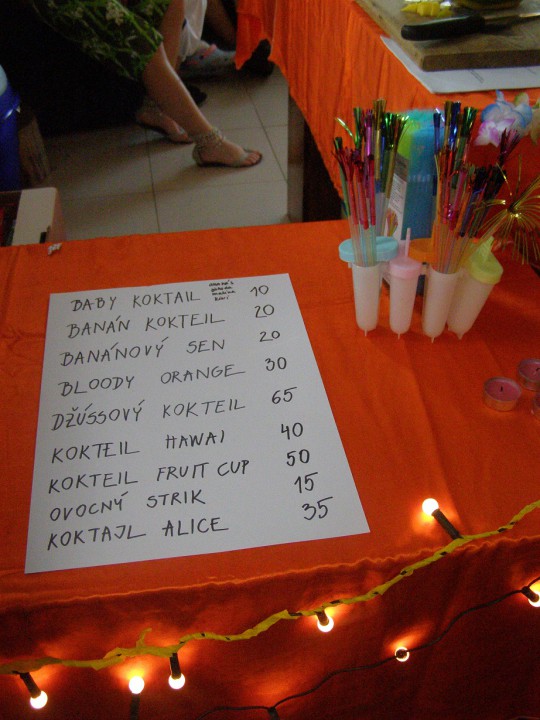 BABY KOKTAIL 10
BANÁN KOKTEIL 20
BANÁNOVÝ SEN 20
BLOODY ORANGE 30
DŽÚSSOVÝ KOKTEIL 65
KOKTEIL HAWAI 40
KOKTEIL FRUIT CUP 50
OVOCNÝ STRIK 15
KOKTAJL ALICE 35